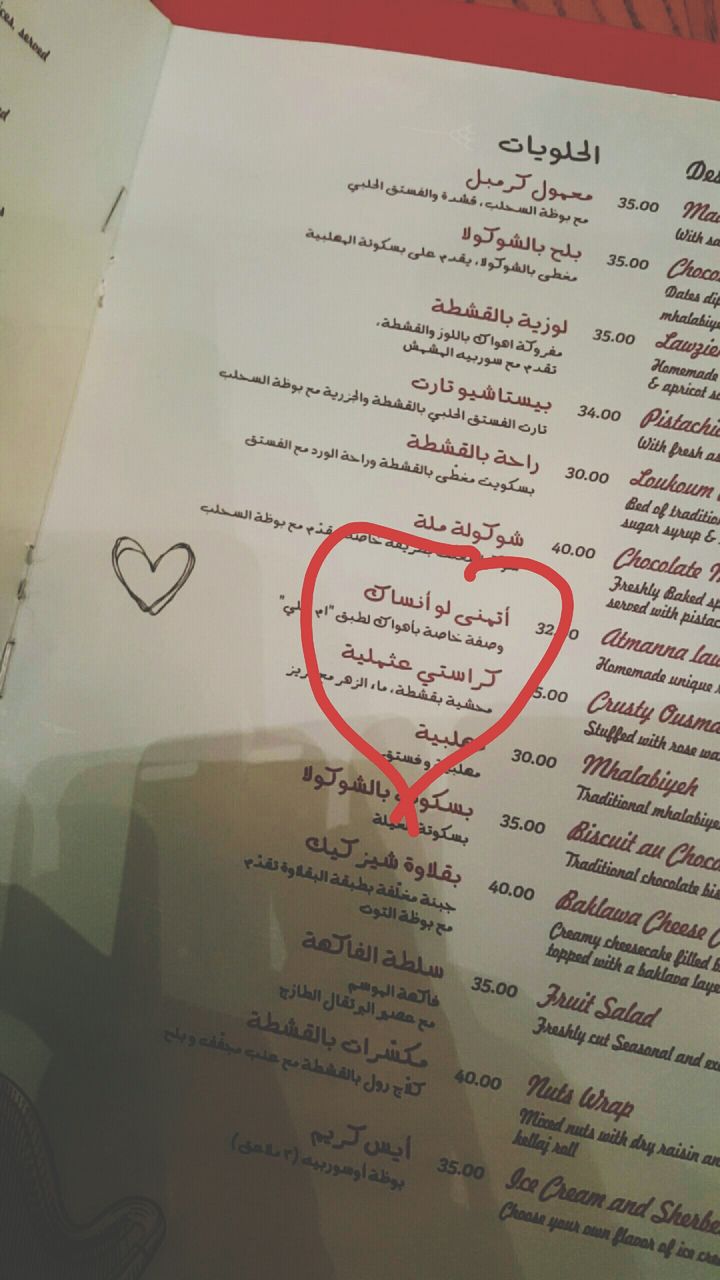 ices, served
الحلويات
Des
معمول كرمبل 35.00
مع بوظة السحلب، قشدة والفستق الحلبي
With sa
بلح بالشوكولا 35.00 Choco
مغطى بالشوكولا، يقدم على بسكوتة المهلبية
Dates dip
mhalabiye
لوزية بالقشطة 35.00 Lawzie
مفروكة اهواك باللوز والقشطة،
تقدم مع سوربيه المشمش
Homemade
& apricot so
بيستاشيو تارت 34.00 Pistachi
تارت الفستق الحلبي بالقشطة والجزرية مع بوظة السحلب
With fresh as
راحة بالقشطة 30.00 Loukoum
بسكويت مغطّى بالقشطة وراحة الورد مع الفستق
Bed of traditio
sugar syrup &
شوكولة ملة 40.00 Chocolate M
بطريقة خاصة يقدّم مع بوظة السحلب
Freshly Baked sp
served with pistac
أتمنى لو أنساك Atmanna law
وصفة خاصة بأهواك لطبق "ام
Homemade unique
كراستي عثملية 5.00 Crusty Ousma
محشية بقشطة، ماء الزهر مع
Stuffed with rose wa
مهلبية 30.00 Mhalabiyeh
مهلبية وفستق
Traditional mhalabiye
بسكوت بالشوكولا 35.00 Biscuit au Choco
بسكوتة
Traditional chocolate bis
بقلاوة شيز كيك 40.00 Baklawa Cheese C
جبنة مغلّفة بطبقة البقلاوة تقدّم
مع بوظة التوت
Creamy cheesecake filled b
topped with a baklava laye
سلطة الفاكهة 35.00 Fruit Salad
فاكهة الموسم
مع عصير البرتقال الطازج
Freshly cut Seasonal and ex
مكسّرات بالقشطة 40.00 Nuts Wrap
كلّاج رول بالقشطة مع عنب مجفف وبلح
Mixed nuts with dry raisin an
kellaj roll
أيس كريم 35.00 Ice Cream and Sherbe
بوظة أوسوربيه (٣ ملاعق)
Choose your own flavor of ice cre